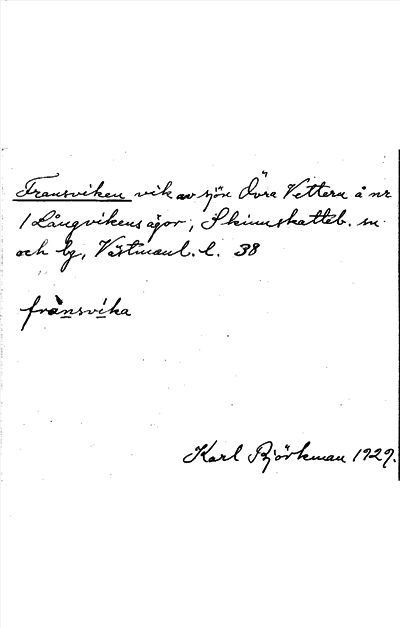 Fransviken vik av sjön Övra Vettern å nr
1 Långvikens ägor, Skinnskatteb. sn.
och bg, Västmanl. l. 38
frànsvika
Karl Björkman 1929.